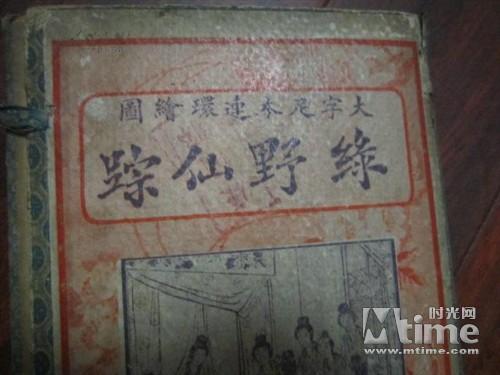 大字足本連環繪圖
綠野仙踪
时光网
Mtime
www.mtime.com